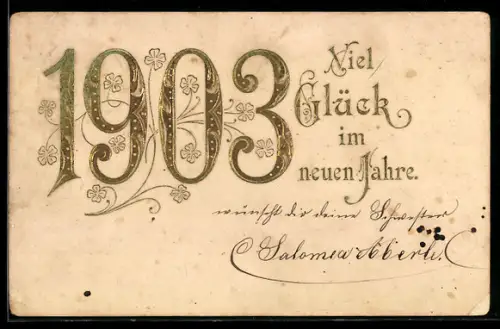 1903
Viel
Glück
im
neuen Jahre.
wünscht dir deine Schwester
Salomea Aberle.